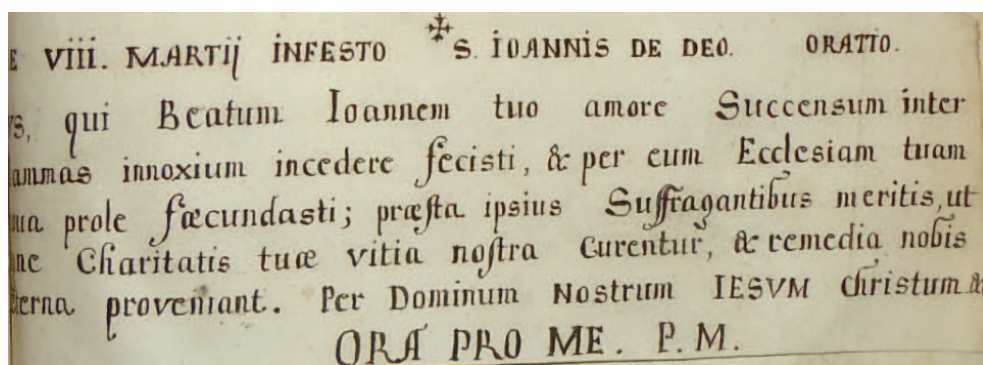 E VIII. MARTIJ INFESTO ✠ S. IOANNIS DE DEO. ORATIO.
s, qui Beatum Ioannem tuo amore Succensum inter
ammas innoxium incedere fecisti, & per eum Ecclesiam tuam
prole fœcundasti; præsta ipsius Suffragantibus meritis, ut
ne Charitatis tuæ vitia nostra Curentur, & remedia nobis
terna proveniant. Per Dominum Nostrum IESVM christum &
ORA PRO ME. P. M.